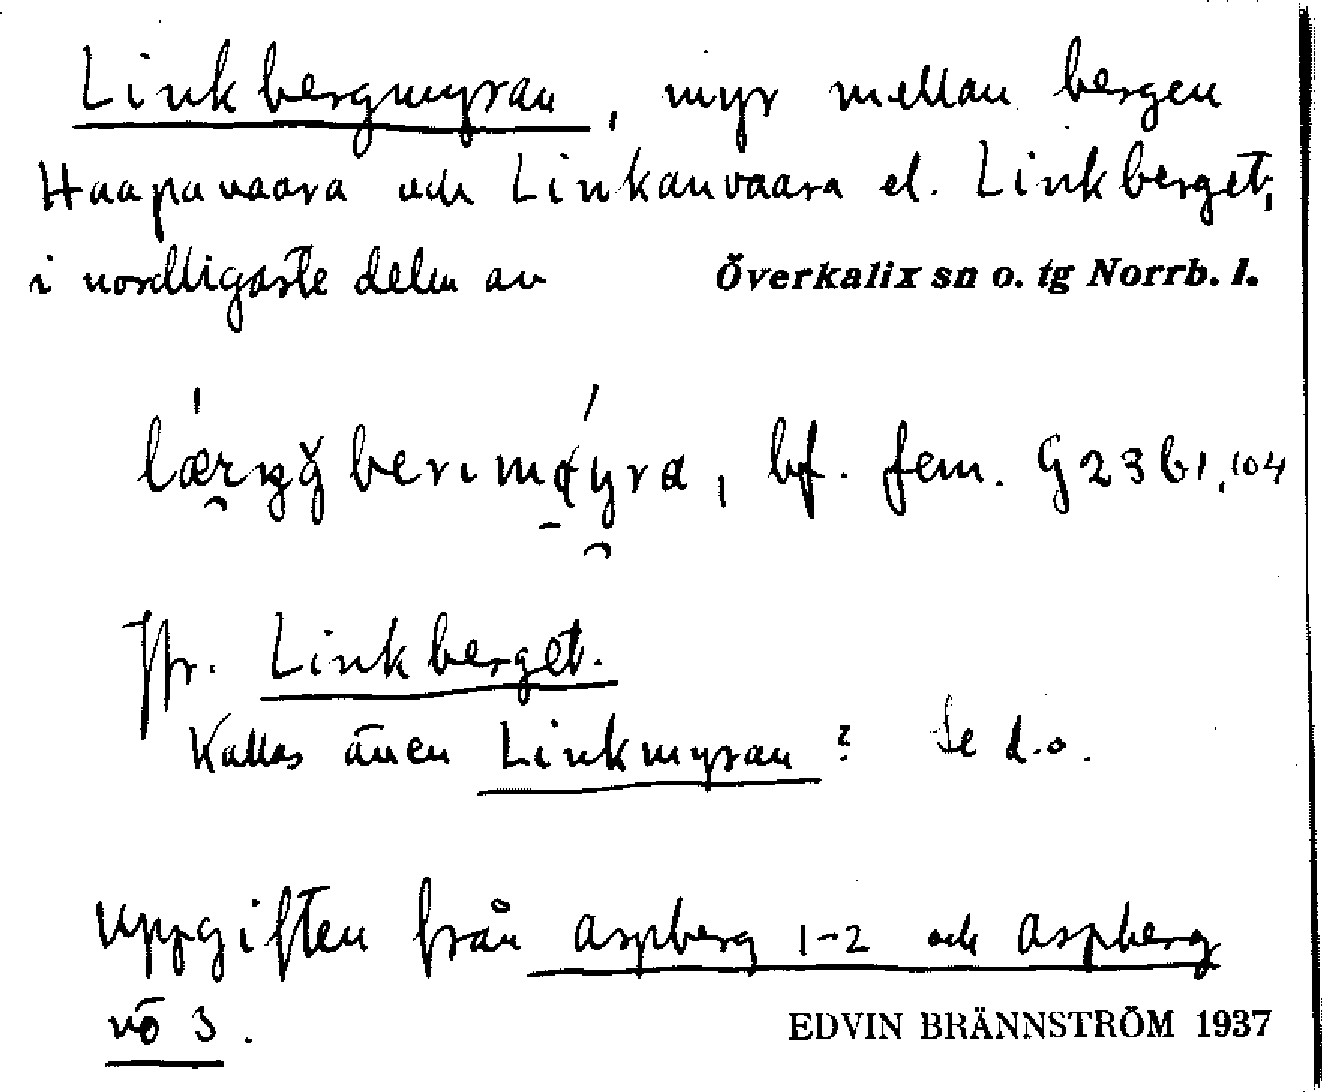 Linkbergmyran, myr mellan bergen
Haapavaara och Linkanvaara el. Linkberget,
i nordligaste delen av Överkalix sn o. tg Norrb. l.
bf. fem. G23b1,104
Jfr. Linkberget.
Kallas även Linkmyran? Se d.o.
Uppgiften från Aspberg 1-2 och Aspberg
vö 3.
EDVIN BRÄNNSTRÖM 1937